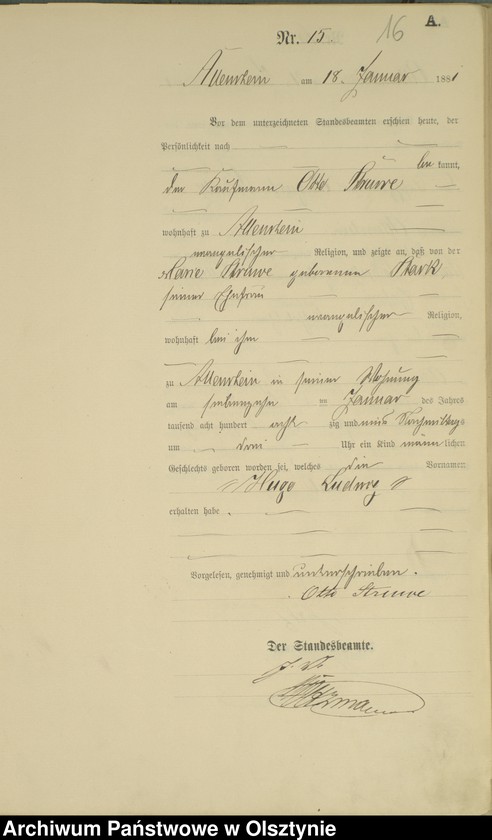 16 A.
Nr. 15.
Allenstein am 18. Januar 1881
Vor dem unterzeichneten Standesbeamten erschien heute, der
Persönlichkeit nach
be kannt,
der Kaufmann Otto Struwe
wohnhaft zu Allenstein
evangelischer Religion, und zeigte an, daß von der
Marie Struwe geborenen Stark
seiner Ehefrau
evangelischer Religion,
wohnhaft bei ihm
zu Allenstein in seiner Wohnung
am siebenzehn ten Januar des Jahres
tausend acht hundert acht zig und eins Nachmittags
um drei Uhr ein Kind männ lichen
Geschlechts geboren worden sei, welches die Vornamen
Hugo Ludwig
erhalten habe.
Vorgelesen, genehmigt und unterschrieben.
Otto Struwe
Der Standesbeamte.
J. V.
Archiwum Państwowe w Olsztynie